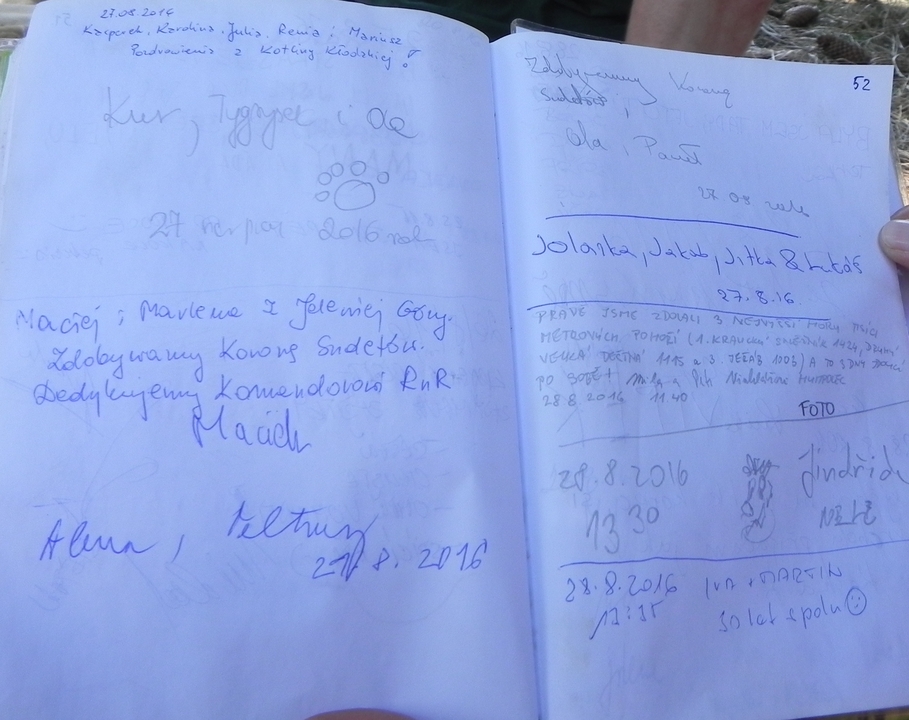 27.08.2016
Kacperek, Karolina, Julia, Renia i Mariusz
Pozdrowienia z Kotliny Kłodzkiej!
Tygrysek i
27 sierpnia 2016 rok
Maciej i Marlena z Jeleniej Góry.
Zdobywamy Koronę Sudetów.
Dedykujemy Komandorowi RnR
Maciek
Alena,
27.8.2016
52
Zdobywamy Koronę
Sudetów,
Ola i Paweł
27 08
Jolanka, Jakub, Jitka & Lukáš
27.8.16.
PRÁVĚ JSME ZDOLALI 3 NEJVYŠŠÍ HORY
METROVÝCH POHOŘÍ (1. KRALICKÝ SNĚŽNÍK 1424,
VELKÁ DEŠTNÁ 1115 a 3. JEŘÁB 1003) A TO
PO SOBĚ!
28 8 2016 11.40
FOTO
28.8.2016
13 30
Jindřich
28.8.2016 IVA + MARTIN
30 let spolu ☺